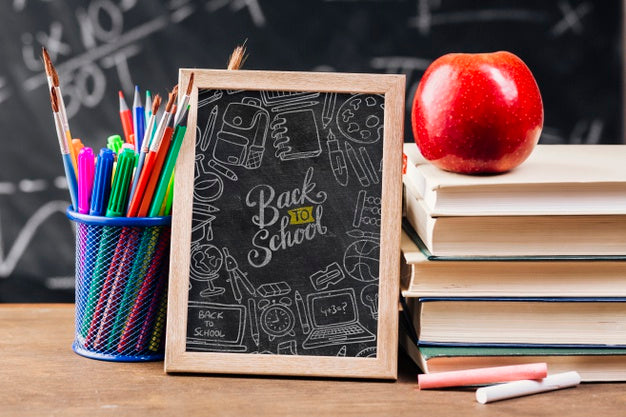 Back
TO
School
BACK TO
SCHOOL
4+3=?